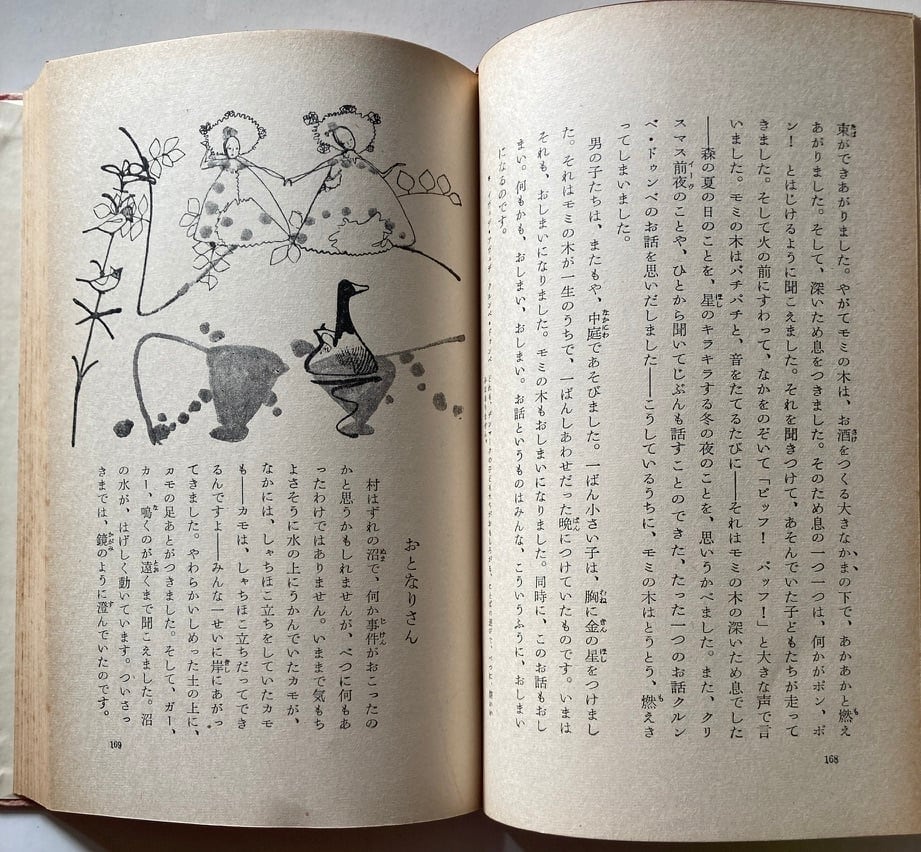 東ができあがりました。やがてモミの木は、お酒をつくる大きなかまの下で、あかあかと燃え
あがりました。そして、深いため息をつきました。そのため息の一つ一つは、何かがポン、ポ
ン！　とはじけるように聞こえました。それを聞きつけて、あそんでいた子どもたちが走って
きました。そして火の前にすわって、なかをのぞいて「ピッフ！　パッフ！」と大きな声で言
いました。モミの木はパチパチと、音をたてるたびに――それはモミの木の深いため息でした
――森の夏の日のことを、星のキラキラする冬の夜のことを、思いうかべました。また、クリ
スマス前夜のことや、ひとから聞いてじぶんも話すことのできた、たった一つのお話クルン
ベ・ドゥンベのお話を思いだしました――こうしているうちに、モミの木はとうとう、燃えき
ってしまいました。
男の子たちは、またもや、中庭であそびました。一ばん小さい子は、胸に金の星をつけまし
た。それはモミの木が一生のうちで、一ばんしあわせだった晩につけていたものです。いまは
それも、おしまいになりました。モミの木もおしまいになりました。同時に、このお話もおし
まい。何もかも、おしまい、おしまい。お話というものはみんな、こういうふうに、おしまい
になるのです。
168
おとなりさん
村はずれの沼で、何か事件がおこったの
かと思うかもしれませんが、べつに何もあ
ったわけではありません。いままで気もち
よさそうに水の上にうかんでいたカモが、
なかには、しゃちほこ立ちをしていたカモ
も――カモは、しゃちほこ立ちだってでき
るんですよ――みんな一せいに岸にあがっ
てきました。やわらかいしめった土の上に、
カモの足あとがつきました。そして、ガー、
カー、鳴くのが遠くまで聞こえました。沼
の水が、はげしく動いています。ついさっ
きまでは、鏡のように澄んでいたのです。
169